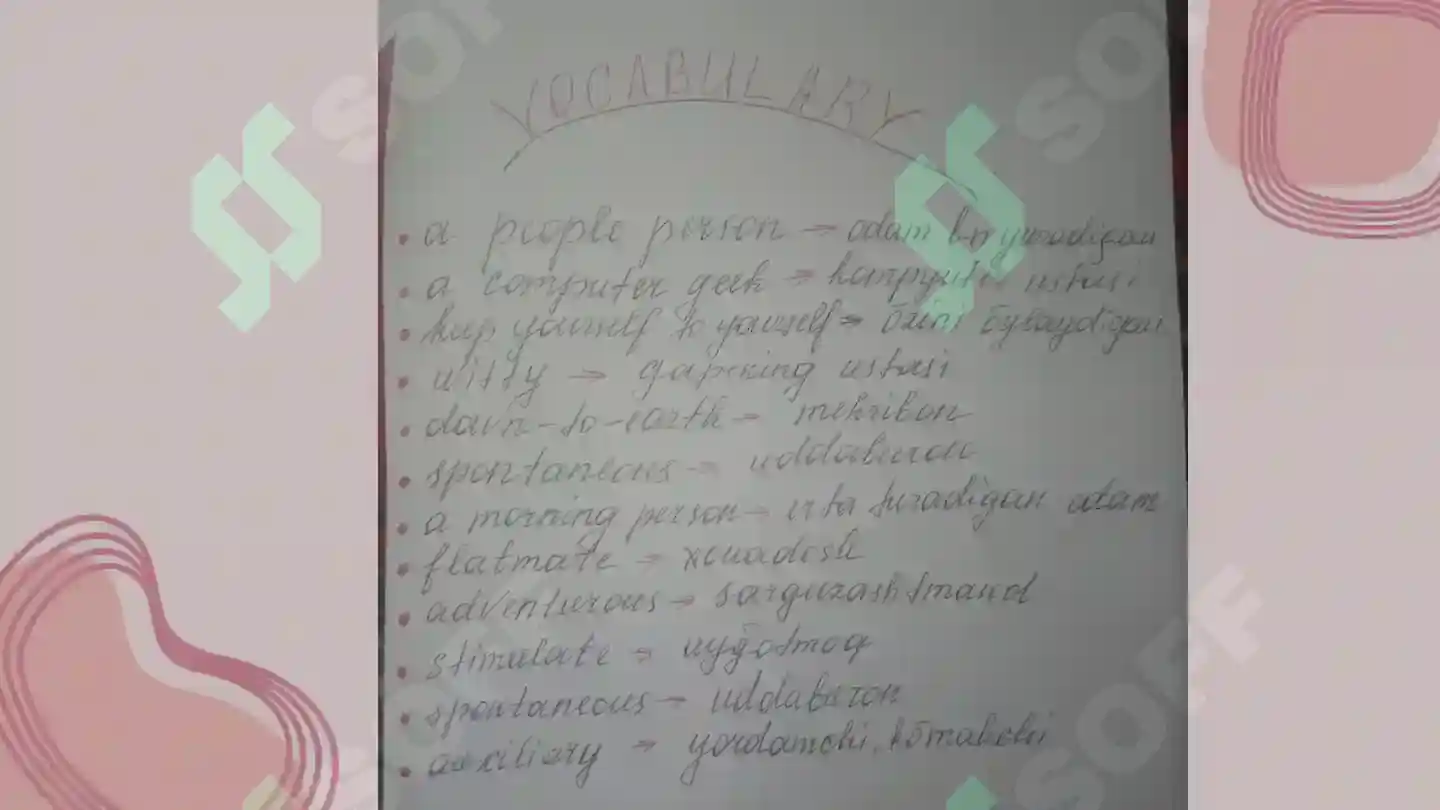 VOCABULARY
SOFF
SOFF
• a people person → odam b-n yuradigan
• a computer geek → kampyuter ustasi
• keep yourself to yourself → ōzini ōylaydigan
• witty → gapining ustasi
• down-to-earth → mehribon
• spontaneous → uddaburon
• a morning person → erta turadigan odam
• flatmate → xonadosh
• adventurous → sarguzashtmand
• stimulate → uyḡotmoq
• spontaneous → uddaburon
• auxiliary → yordamchi, kōmakchi
SOFF